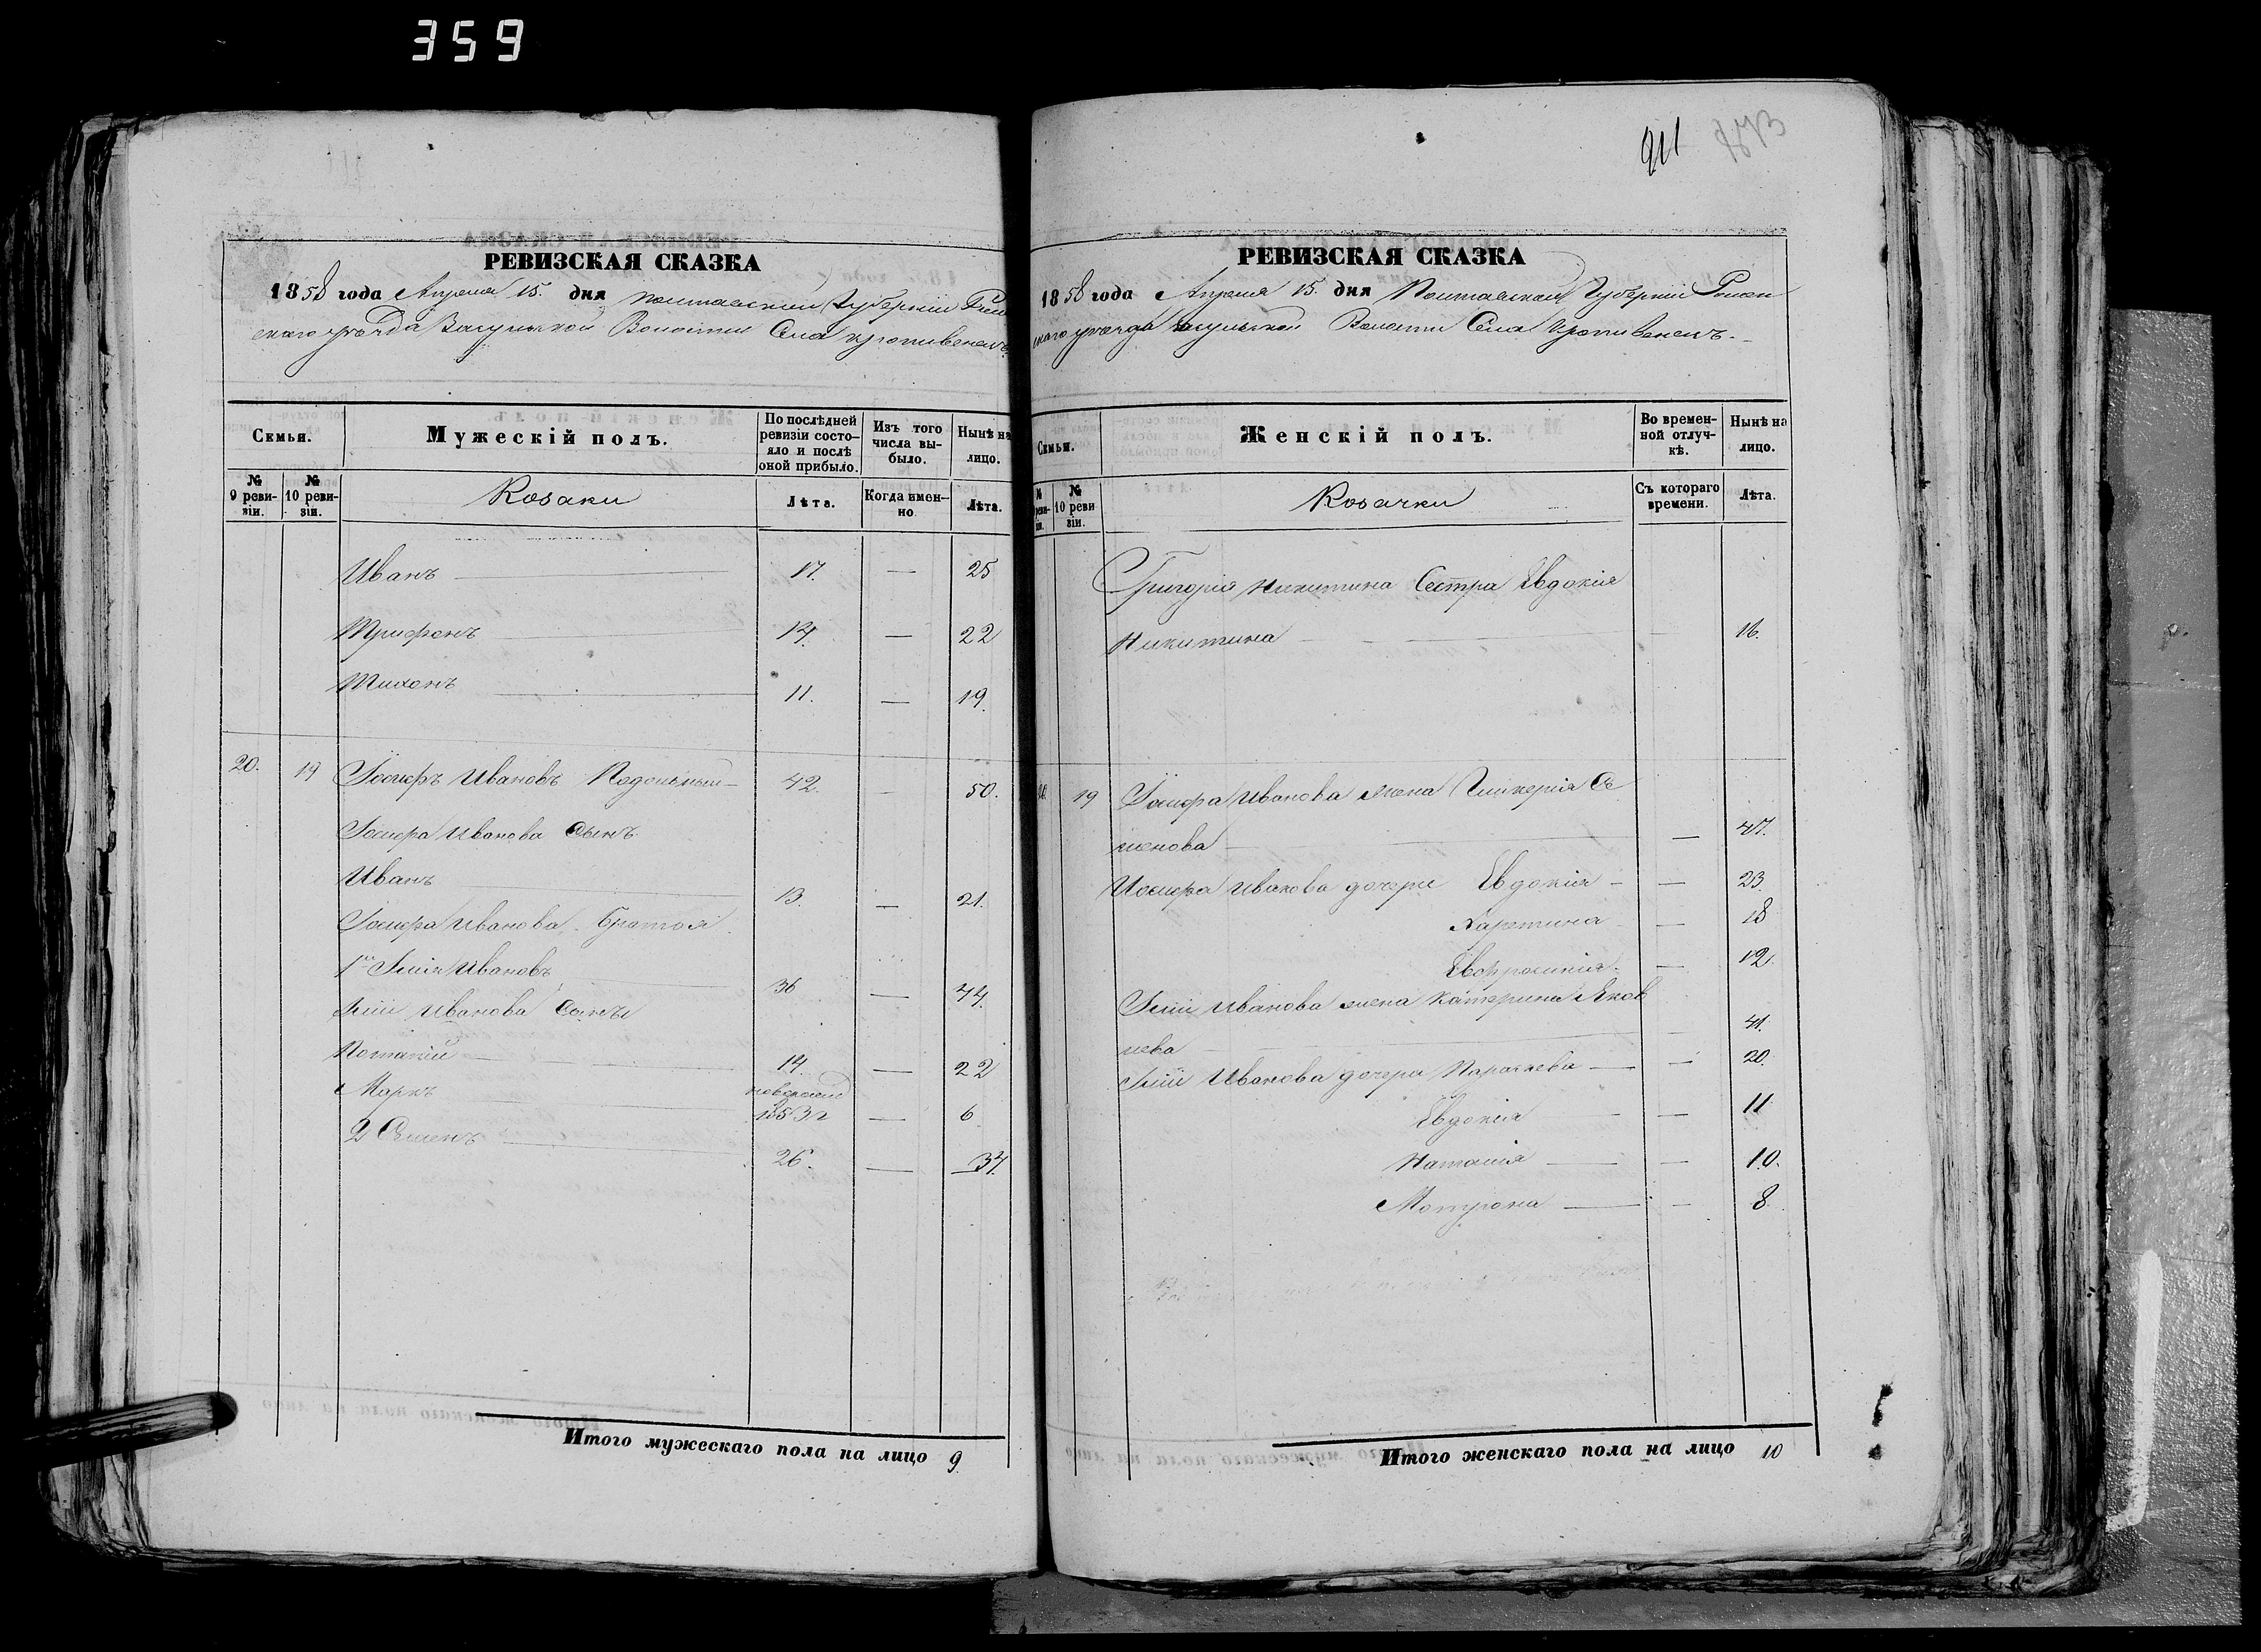 359
РЕВИЗСКАЯ СКАЗКА
1858 года Апреля 15. дня Полтавской Губерніи Ромен
скаго уѣзда Засульской Волости Села Кропивенецъ
Семьи.
Мужескій полъ.
По послѣдней ревизіи состояло и послѣ оной прибыло.
Изъ того числа выбыло.
Нынѣ на лицо.
№ 9 ревизіи.
№ 10 ревизіи.
Козаки
Лѣта.
Когда именно
Лѣта.
Иванъ 17. — 25
Трифонъ 14. — 22
Тихонъ 11. — 19.
20. 19 Іосифъ Ивановъ 42. 50.
Іосифа Иванова Сынъ
Иванъ 13. — 21.
Іосифа Иванова Братья
1й Илія Ивановъ 36 — 44.
Иліи Иванова Сыны
Потапій 14. — 22
Маркъ 1853 г — 6
2 Семенъ 26. — 34.
Итого мужескаго пола на лицо 9.
911
РЕВИЗСКАЯ СКАЗКА
1858 года Апреля 15. дня Полтавской Губерніи Ромен
скаго уѣзда Засульской Волости Села Кропивенецъ.
Семьи.
Женскій полъ.
Во временной отлучкѣ.
Нынѣ на лицо.
№ 10 ревизіи.
Козачки
Съ котораго времени.
Лѣта.
Григорія Никитина Сестра Евдокія
Никитина 16.
19 Іосифа Иванова жена Гликерія Се
менова — 47.
Иосифа Иванова дочери Евдокія — 23.
Харитина — 18
Евфросинія — 12.
Иліи Иванова жена Катерина Яков
лева 41.
Иліи Иванова дочери Параскева — 20.
Евдокія — 11
Наталія — 10.
Мотрона — 8.
Итого женскаго пола на лицо 10